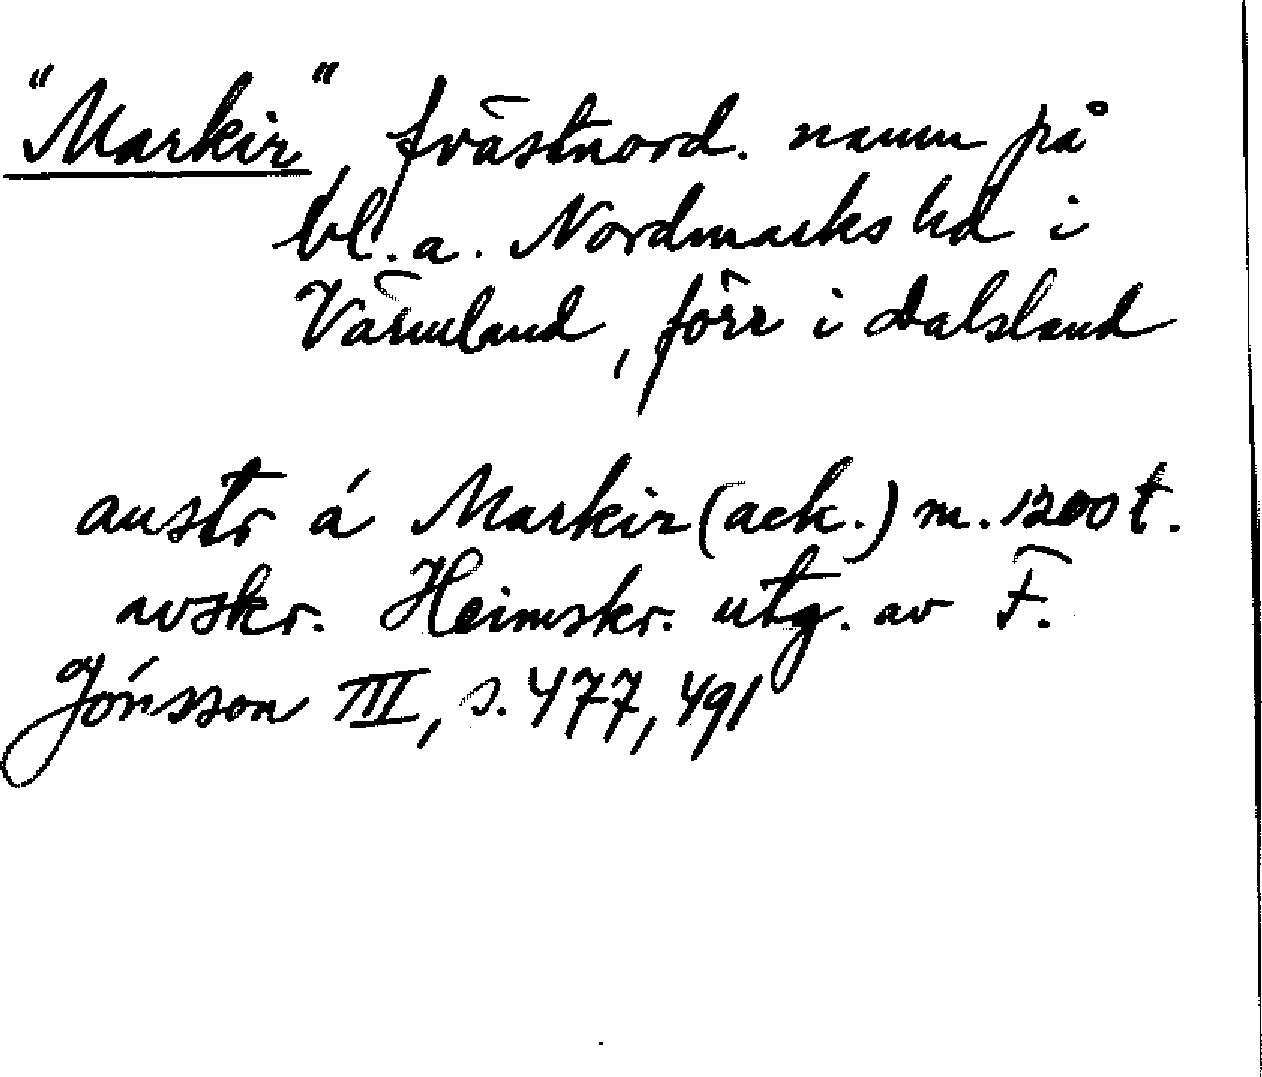 "Markir", fvästnord. namn på
bl.a. Nordmarks hd i
Värmland, förr i Dalsland
austr á Markir (ack.) m. 1200 t.
avskr. Heimskr. utg. av F.
Jónsson III, s. 477, 491